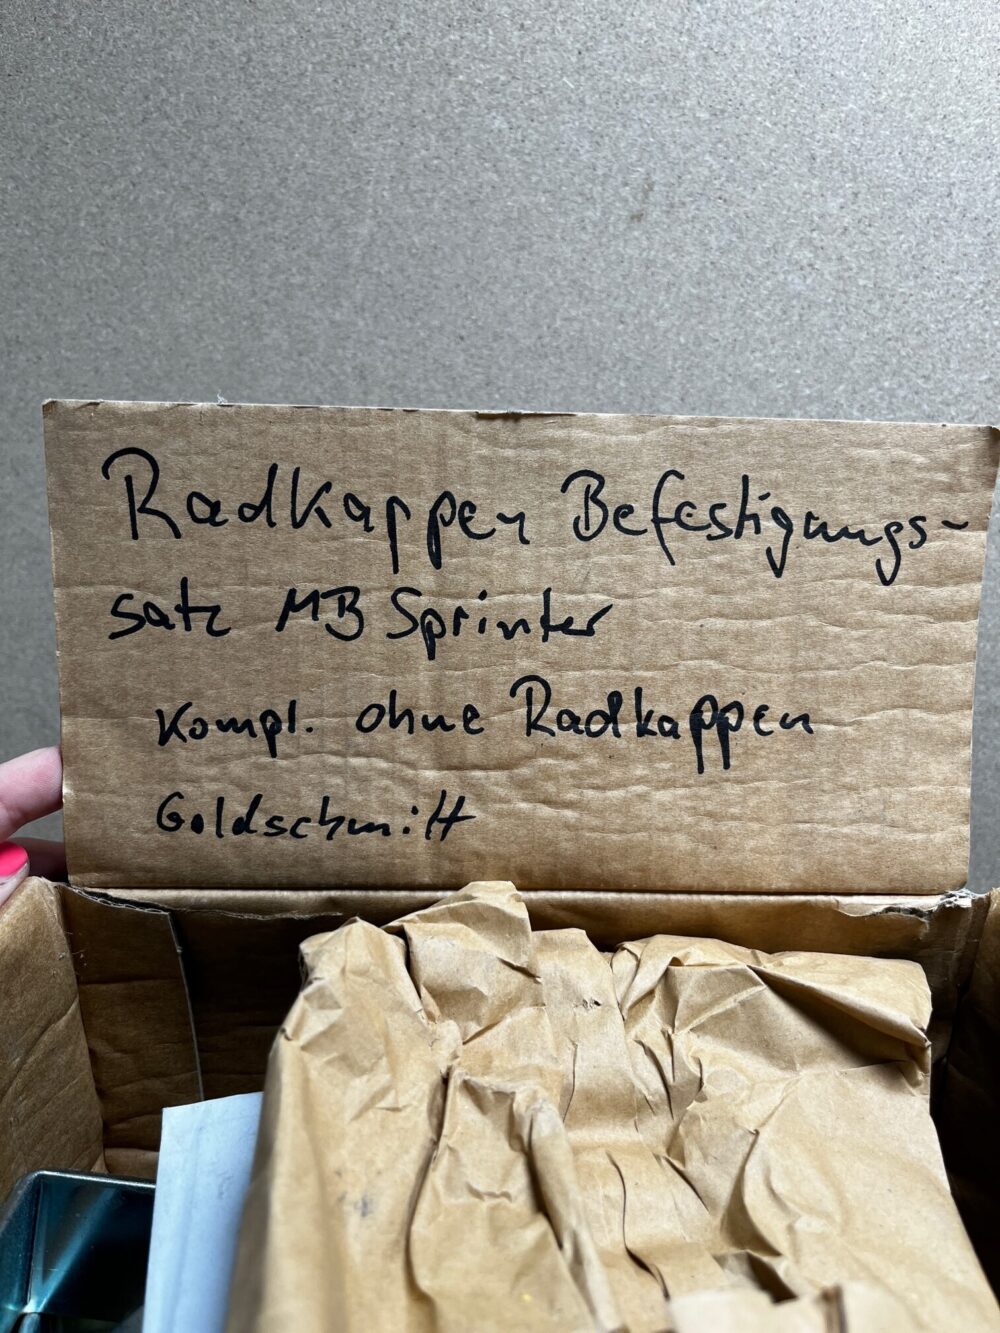 Radkappen Befestigungs-
satz MB Sprinter
Kompl. ohne Radkappen
Goldschmitt